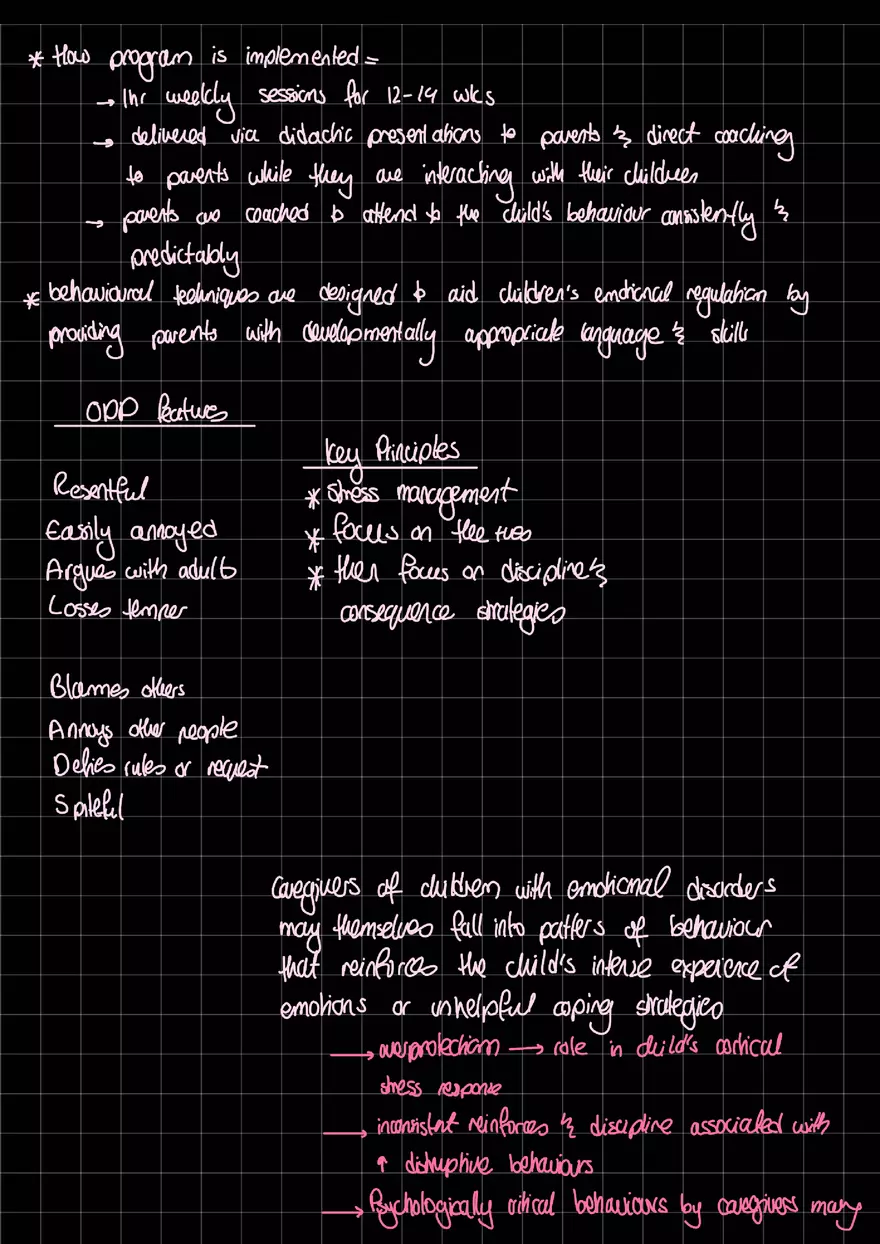 * How program is implemented =
→ 1hr weekly sessions for 12-14 wks
→ delivered via didactic presentations to parents & direct coaching
to parents while they are interacting with their children
→ parents are coached to attend to the child's behaviour consistently &
predictably
* behavioural techniques are designed to aid children's emotional regulation by
providing parents with developmentally appropriate language & skills
ODD features
Key Principles
Resentful
Easily annoyed
Argues with adults
Losses temper
* stress management
* focus on the
* then focus on discipline &
consequence strategies
Blames others
Annoys other people
Defies rules or request
Spiteful
Caregivers of children with emotional disorders
may themselves fall into patters of behaviour
that reinforces the child's intense experience of
emotions or unhelpful coping strategies
→ overprotection → role in child's cortical
stress response
→ inconsistent reinforces & discipline associated with
↑ disruptive behaviours
→ Psychologically critical behaviours by caregivers many